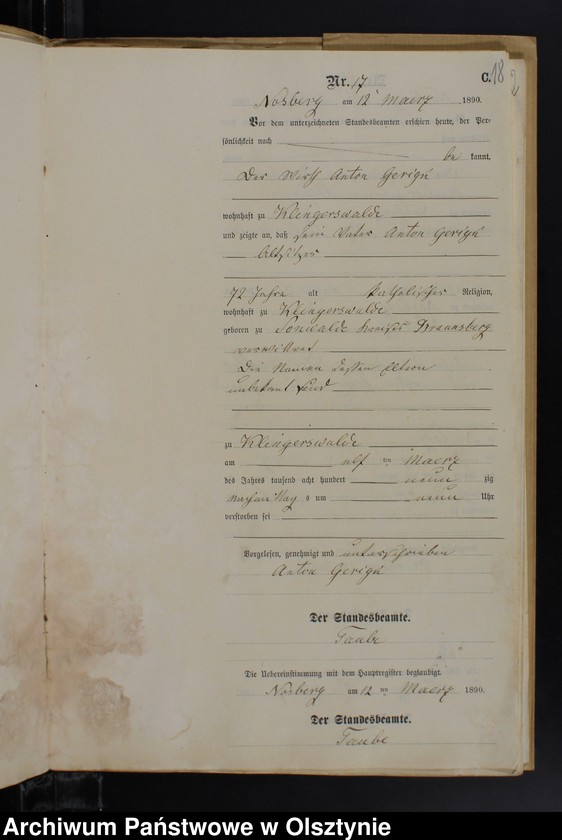 Nr. 17
C.
18
2
Nosberg am 12 Maerz 1890.
Vor dem unterzeichneten Standesbeamten erschien heute, der Per-
sönlichkeit nach
be kannt,
Der Wirth Anton Gerigk
wohnhaft zu Klingerswalde
und zeigte an, daß sein Vater Anton Gerigk
Altsitzer
72 Jahre alt katholischer Religion,
wohnhaft zu Klingerswalde
geboren zu Sonwalde Kreises Braunsberg
verwittwet
Die Namen dessen Eltern
unbekant sind
zu Klingerswalde
am elf ten Maerz
des Jahres tausend acht hundert neun zig
nachmittag s um neun Uhr
verstorben sei
Vorgelesen, genehmigt und unterschrieben
Anton Gerigk
Der Standesbeamte.
Taube
Die Uebereinstimmung mit dem Hauptregister beglaubigt.
Nosberg am 12 ten Maerz 1890.
Der Standesbeamte.
Taube
Archiwum Państwowe w Olsztynie